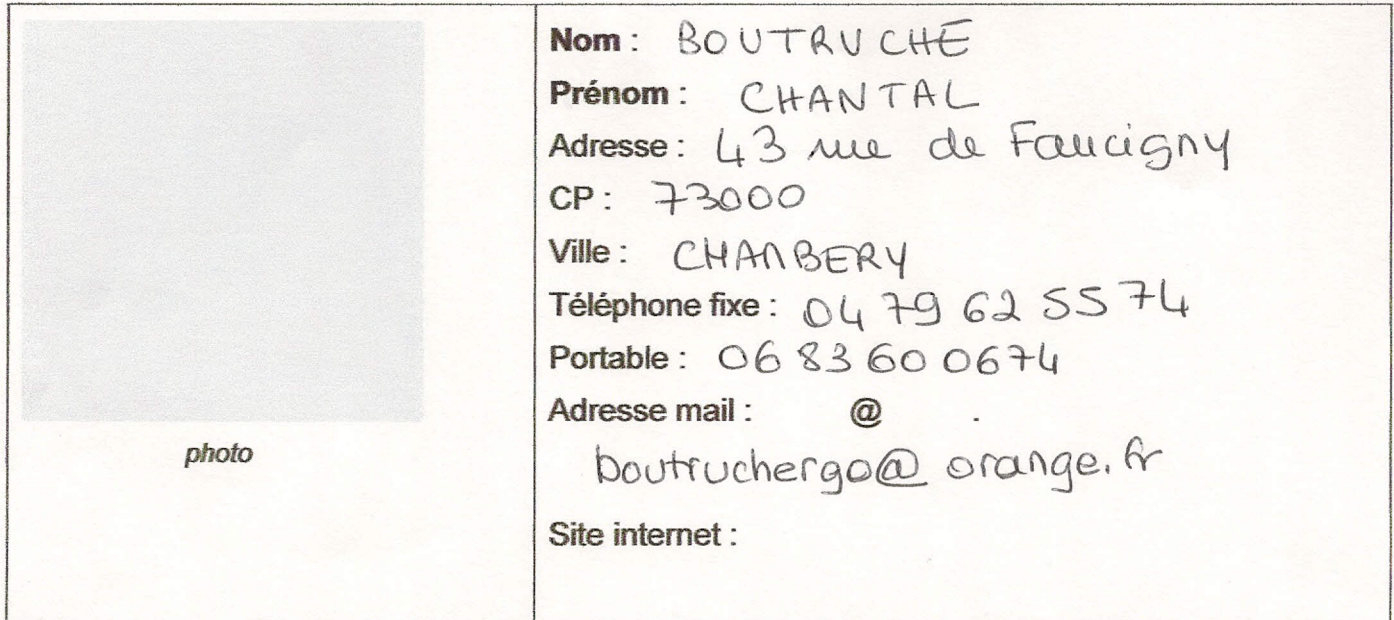 Nom : BOUTRUCHE
Prénom : CHANTAL
Adresse : 43 rue de Faucigny
CP : 73000
Ville : CHAMBERY
Téléphone fixe : 04 79 62 55 74
Portable : 06 83 60 0674
Adresse mail : @ .
boutruchergo@orange.fr
Site internet :
photo